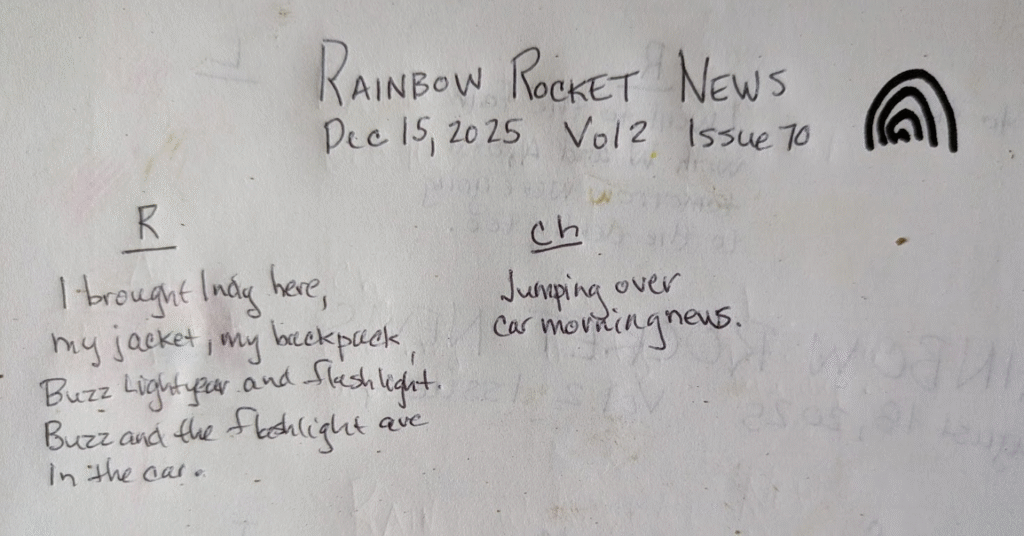 RAINBOW ROCKET NEWS
Dec 15, 2025 Vol 2 Issue 70
R
I brought Indy here,
my jacket, my backpack,
Buzz Lightyear and flashlight.
Buzz and the flashlight are
in the car.
Ch
Jumping over
car morning news.